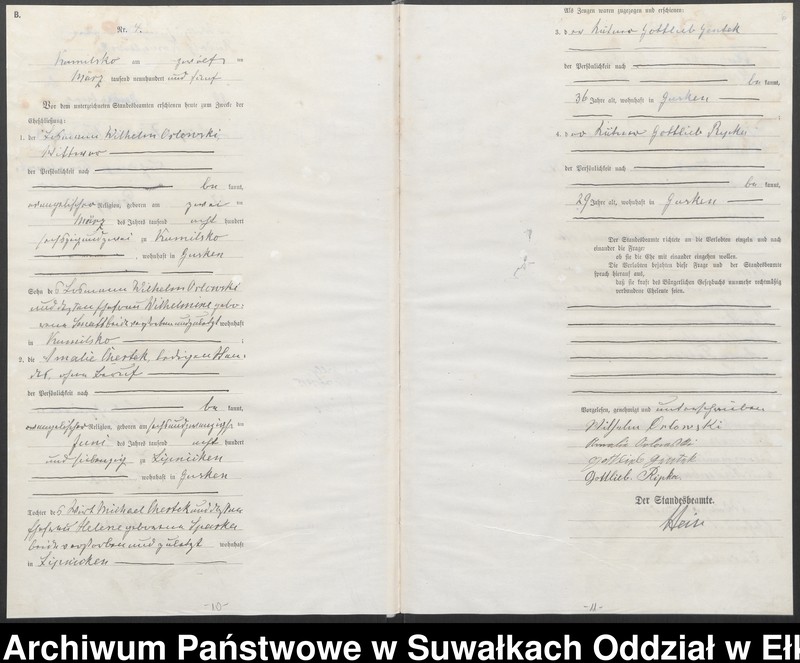 B.
Nr. 4.
Kumilsko am zwölf ten
März tausend neunhundert und fünf
Vor dem unterzeichneten Standesbeamten erschienen heute zum Zwecke der
Eheschließung:
1. der Losmann Wilhelm Orlowski
Wittwer
der Persönlichkeit nach
be kannt,
evangelischer Religion, geboren am zwei ten
März des Jahres tausend acht hundert
sechszigundzwei zu Kumilsko
, wohnhaft in Gusken
Sohn des Losmann Wilhelm Orlowski
und dessen Ehefrau Wilhelmine gebo-
rene beide verstorben und zuletzt wohnhaft
in Kumilsko ;
2. die Amalie ledigen Stan-
des, ohne Beruf
der Persönlichkeit nach
be kannt,
evangelischer Religion, geboren am sechsundzwanzigsten
Juni des Jahres tausend acht hundert
und siebenzig zu Lipnicken
, wohnhaft in Gusken
Tochter des Wirt Michael und dessen
Ehefrau Helene geborene
beide verstorben und zuletzt wohnhaft
in Lipnicken
-10-
Als Zeugen waren zugezogen und erschienen:
3. der Käthner Gottlieb
der Persönlichkeit nach
be kannt,
36 Jahre alt, wohnhaft in Gusken
4. der Käthner Gottlieb Rypka
der Persönlichkeit nach
be kannt,
29 Jahre alt, wohnhaft in Gusken
Der Standesbeamte richtete an die Verlobten einzeln und nach
einander die Frage:
ob sie die Ehe mit einander eingehen wollen.
Die Verlobten bejahten diese Frage und der Standesbeamte
sprach hierauf aus,
daß sie kraft des Bürgerlichen Gesetzbuchs nunmehr rechtmäßig
verbundene Eheleute seien.
Vorgelesen, genehmigt und unterschrieben
Wilhelm Orlowski
Amalie Orlowski
Gottlieb
Gottlieb Ripka
Der Standesbeamte.
-11-
Archiwum Państwowe w Suwałkach Oddział w Eł